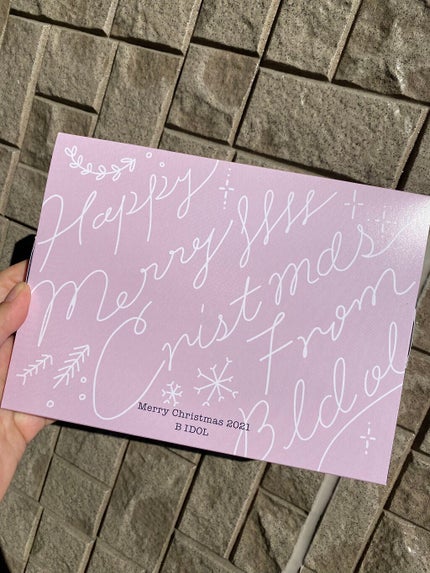 Happy
Merry
Cristmas
From
BIdol
Merry Christmas 2021
B IDOL